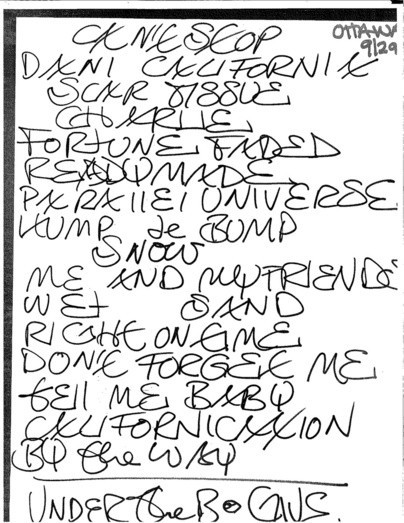 CAN'T STOP
OTTAWA
9/29
DANI CALIFORNIA
SCAR TISSUE
CHARLIE
FORTUNE FADED
READYMADE
PARALLEL UNIVERSE
HUMP de BUMP
SNOW
ME AND MY FRIENDS
WET SAND
RIGHT ON TIME
DON'T FORGET ME
tell ME BABY
CALIFORNICATION
BY the WAY
UNDER the BRIDGE